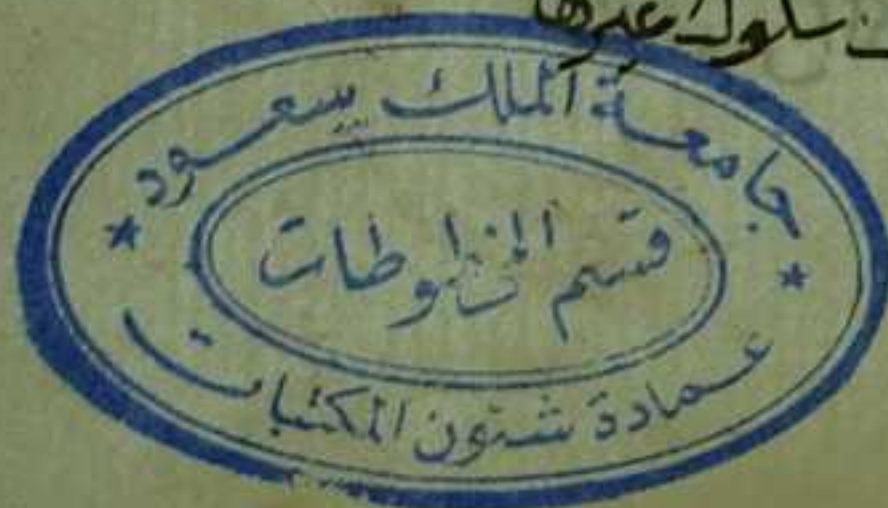 سلوك غيرها
جامعة الملك سعود
قسم المخطوطات
عمادة شئون المكتبات